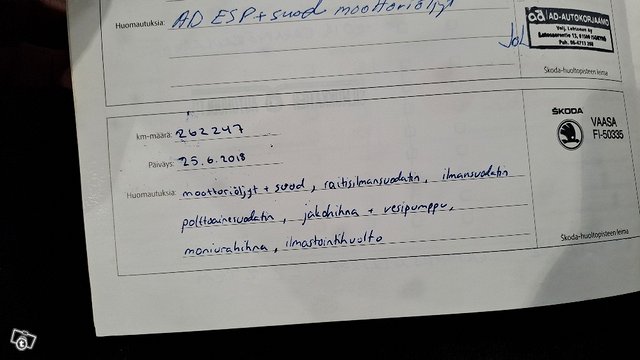 Huomautuksia: AD ESP + suod moottoriöljyt
ad AD-AUTOKORJAAMO
Puh. 06-4711 200
Škoda-huoltopisteen leima
km-määrä: 262247
Päiväys: 25.6.2018
Huomautuksia: moottoriöljyt + suod, raitisilmansuodatin, ilmansuodatin
polttoainesuodatin, jakohihna + vesipumppu,
moniurahihna, ilmastointihuolto
ŠKODA
VAASA
FI-50335
Škoda-huoltopisteen leima